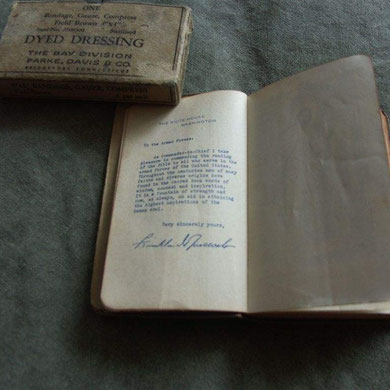 ONE
Bandage, Gauze, Compress
Field Brown
Sterilized
DYED DRESSING
THE BAY DIVISION
PARKE, DAVIS & CO.
BRIDGEPORT CONNECTICUT
THE WHITE HOUSE
WASHINGTON
To the Armed Forces:
As Commander-in-Chief I take
pleasure in commending the reading
of the Bible to all who serve in the
armed forces of the United States.
Throughout the centuries men of many
faiths and diverse origins have
found in the Sacred Book words of
wisdom, counsel and inspiration.
It is a fountain of strength and
now, as always, an aid in attaining
the highest aspirations of the
human soul.
Very sincerely yours,
Franklin D Roosevelt